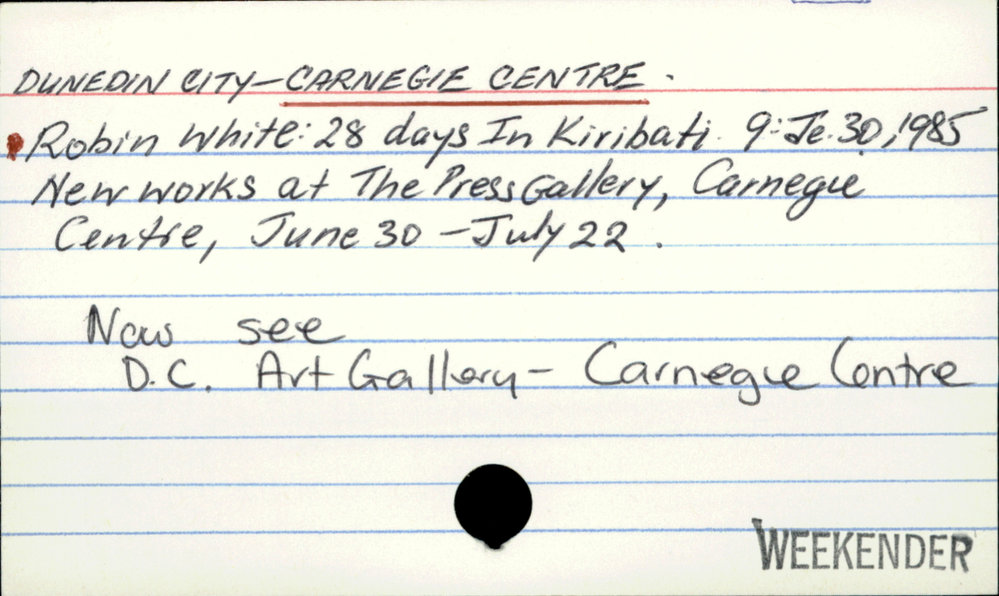 DUNEDIN CITY-CARNEGIE CENTRE.
Robin White: 28 days In Kiribati 9: Je.30,1985
New works at The Press Gallery, Carnegie
Centre, June 30 - July 22.
Now see
D.C. Art Gallery - Carnegie Centre
WEEKENDER